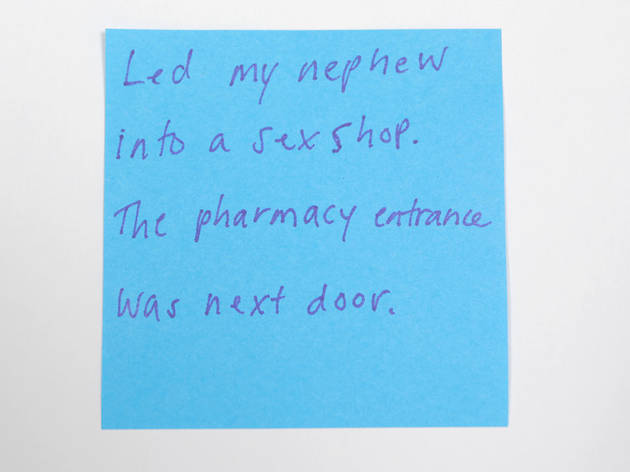 Led my nephew
into a sex shop.
The pharmacy entrance
was next door.